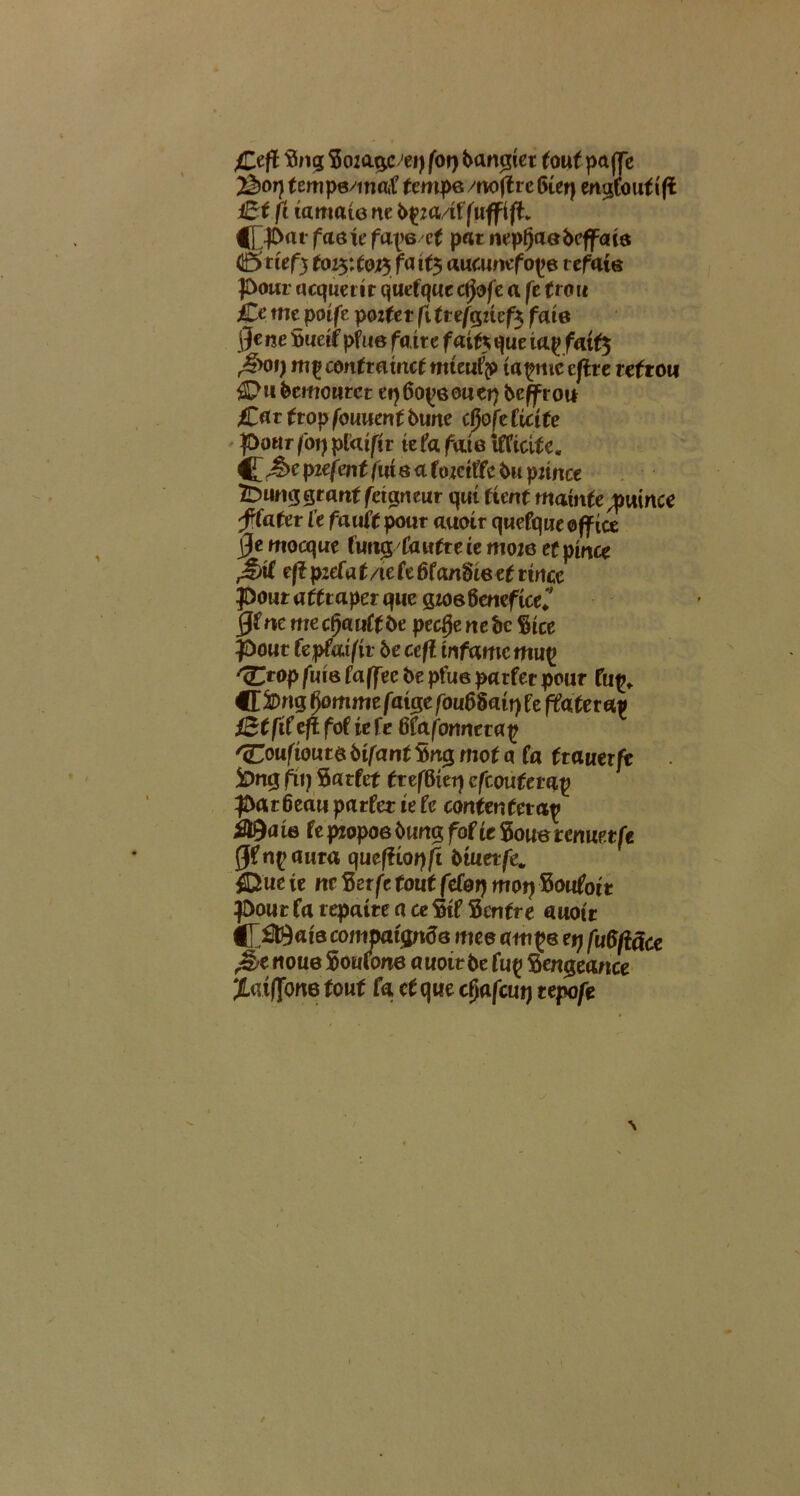 Cest vng vorage/en son dangier tout passe
Bon temps/mal temps/nostre bien engloutist
Et si iamais ne dyra/il suffist.
¶Par fas ie fays/et par nephas deffais
Griefz tors:tors faitz aucunesfoys refais
Pour acquerir quelque chose a se trou
Ce me poise porter si tresgriefz fais
Je ne vueil plus faire faitz que iay faitz
Son my contrainct mieulx iayme estre retrou
Du demourer en boys ou en desfrou
Car trop souuent dune chose licite
Pour son plaisir ie la fais illicite.
¶Se present suis a loreille du prince
Dung grant seigneur qui tient mainte prouince
Flater le fault pour auoir quelque office
Je mocque lung/laultre ie mors et pince
Sil est prelat/ie le blandis et rince
Pour attraper que gros benefice.
Il ne me chault de peche ne de vice
Pour le plaisir de cest infame muy
Trop suis lassee de plus parler pour luy.
¶Vng homme saige soubdain le flateray
Et sil est fol ie le blasonneray
Tousiours disant vng mot a la trauerse
Vng fin varlet tresbien escouteray
Par beau parler ie le contenteray
Mais le propos dung fol ie vous renuerse
Il ny aura question si diuerse.
Que ie ne verse tout selon mon vouloir
Pour la repaire a ce vil ventre auoir
¶Mais compaignons mes amys en substãce
Se nous voulons auoir de luy vengeance
Laissons tout la et que chascun repose